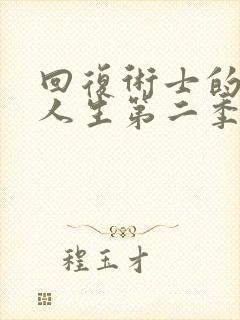 回復術士的
人生第二季
程玉才